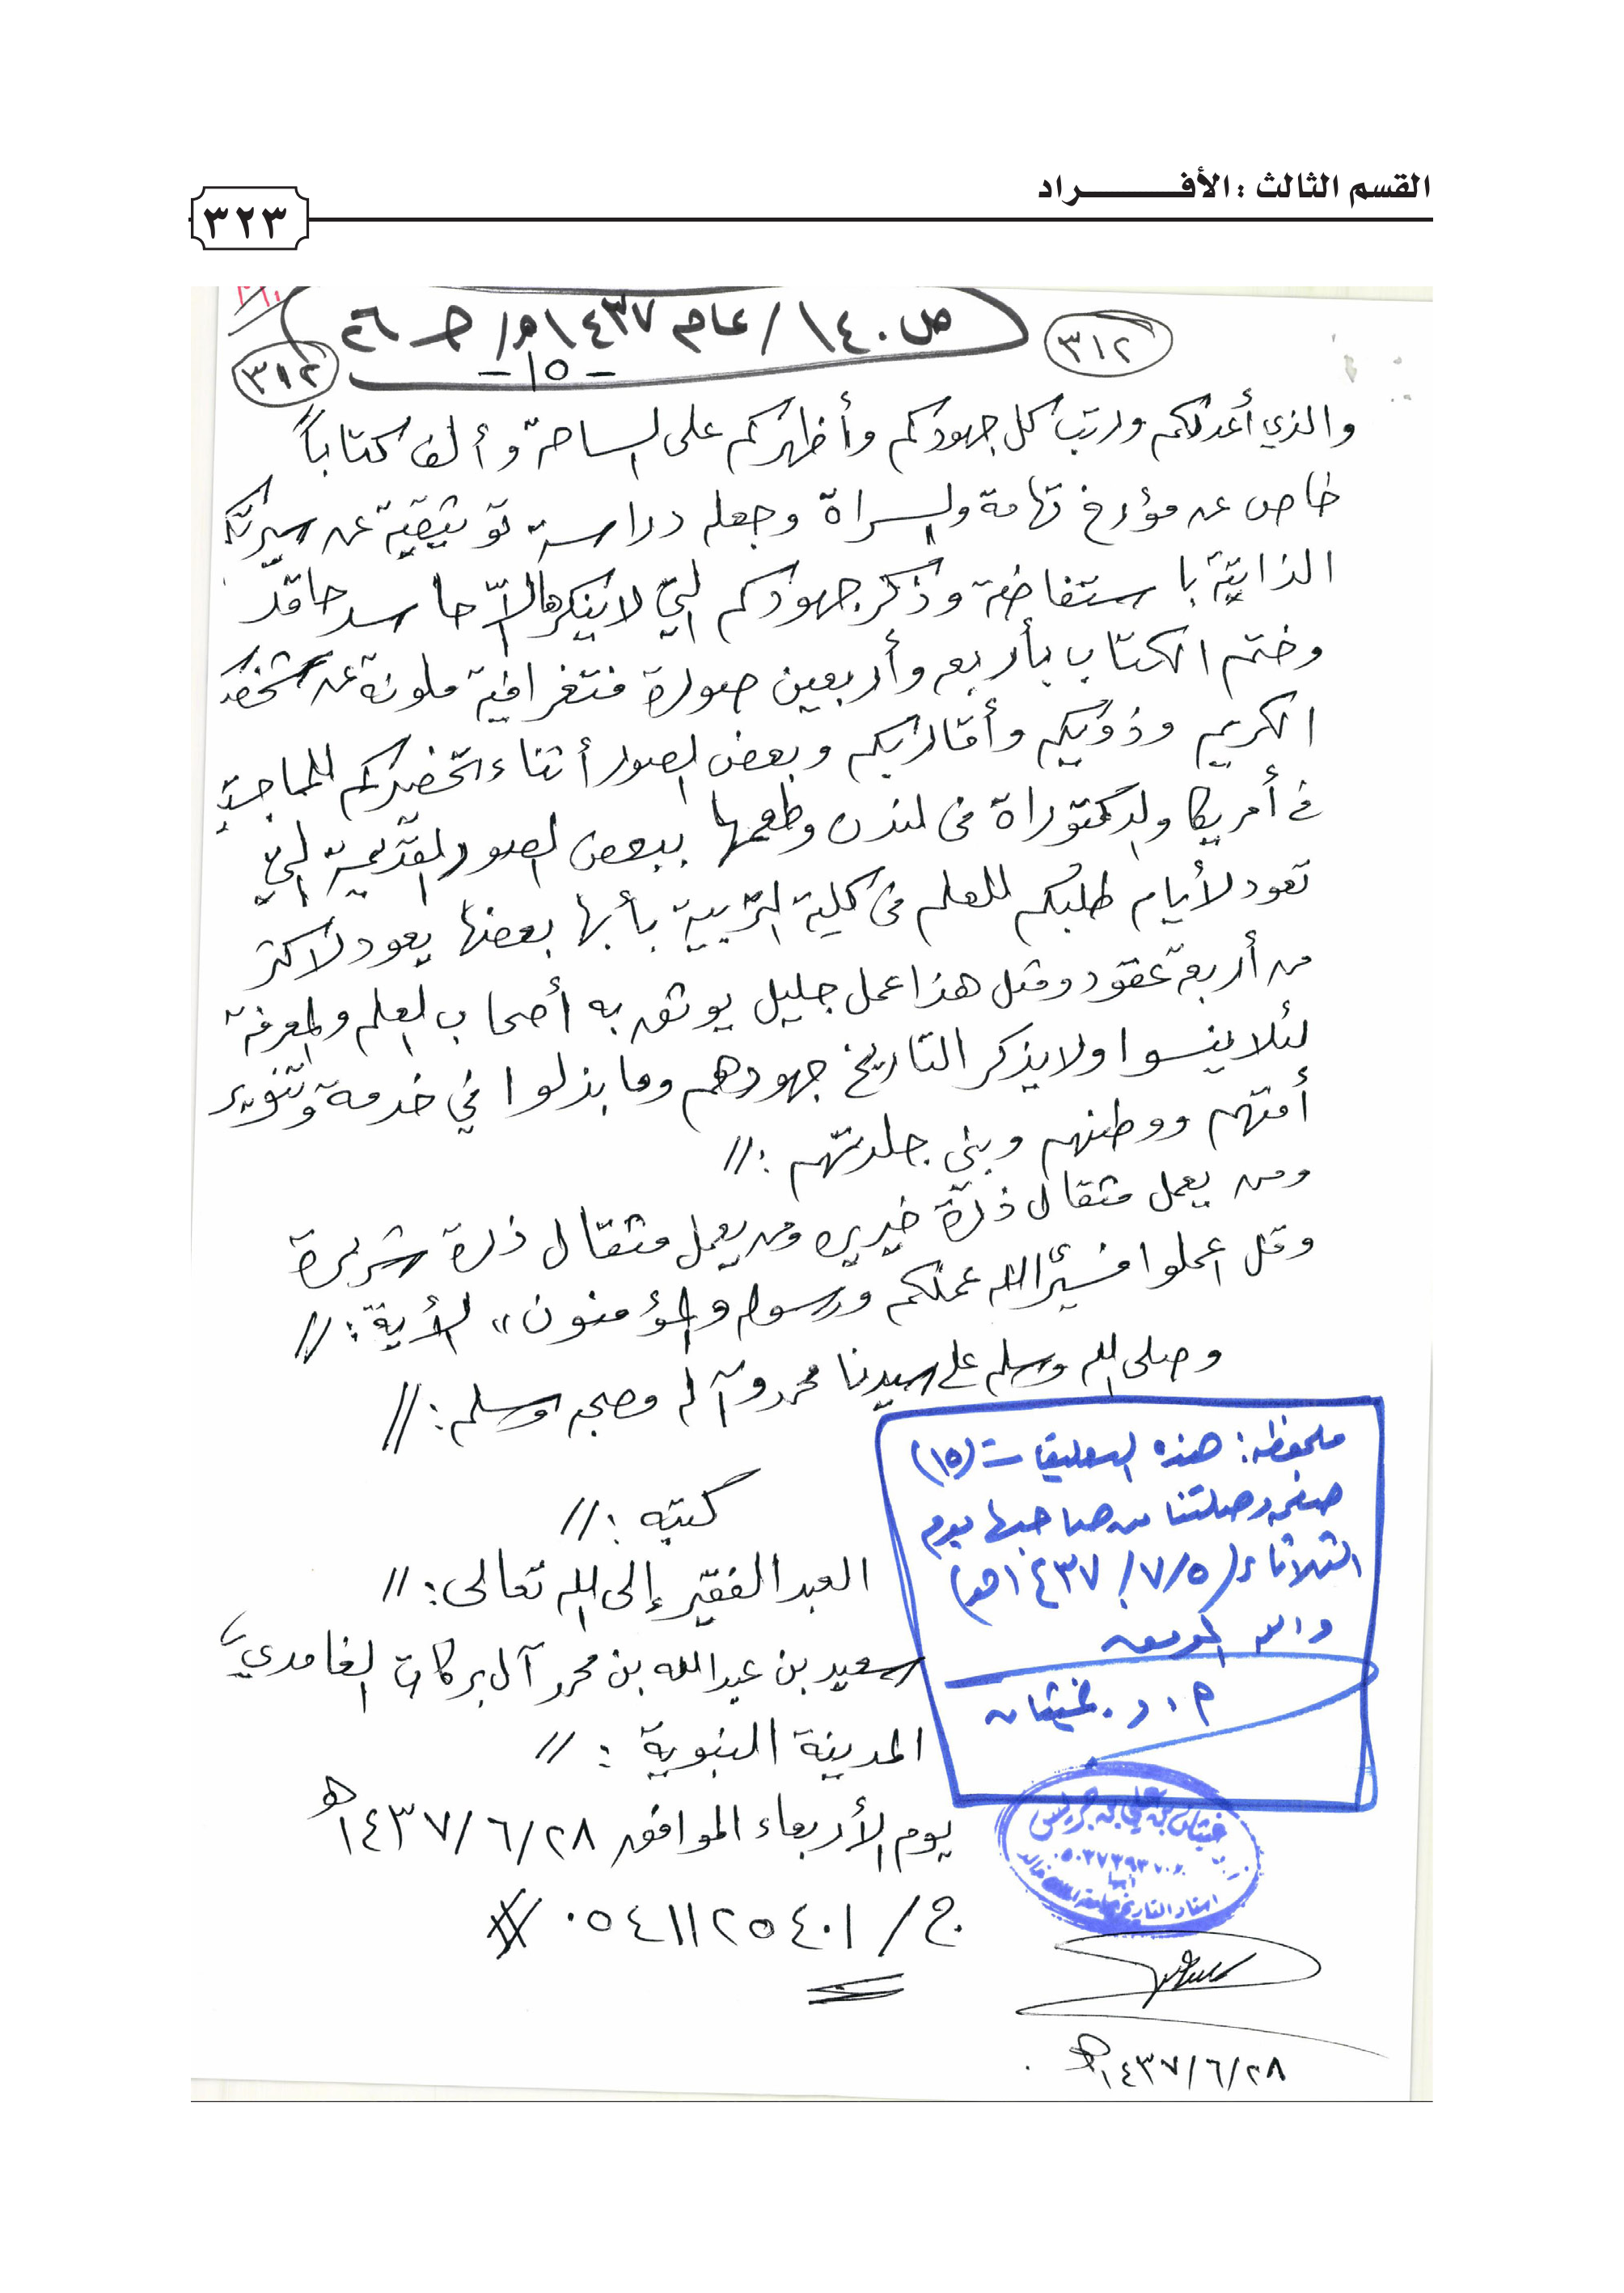 القسم الثالث : الأفـــــــراد
٣٢٣
ص ١٤٠ / عام ١٤٣٧هـ / جـ ٢٦
٣١٢
٣١٢
- ١٥ -
والذي أعد لكم ورتب كل جهودكم وأظهركم على الساحة وألف كتاباً
خاص عن مؤرخ تهامة والسراة وجعله دراسة توثيقية عن سيرتك
الذاتية باستفاضة وذكر جهودكم التي لا ينكرها إلاّ حاسد حاقد
وختم الكتاب بأربع وأربعين صورة فتغرافية ملونة عن شخصك
الكريم وذويكم وأقاربكم وبعض الصور أثناء تحضيركم للماجستير
في أمريكا والدكتوراة في لندن وطعمها ببعض الصور القديمة التي
تعود لأيام طلبكم للعلم في كلية التربية بأبها بعضها يعود لاكثر
من أربعة عقود ومثل هذا عمل جليل يوثق به أصحاب العلم والمعرفة
لئلا ينسوا ولا يذكر التاريخ جهودهم وما بذلوا في خدمة وتنوير
أمتهم ووطنهم وبني جلدتهم : //
ومن يعمل مثقال ذرة خير يره ومن يعمل مثقال ذرة شر يرة
وقل اعملوا فسيرى الله عملكم ورسوله والمؤمنون " الأية : //
وصلى الله وسلم على سيدنا محمد وآله وصحبه وسلم : //
كتبه : //
العبد الفقير إلى الله تعالى : //
سعيد بن عبدالله بن محمد آل بركات الغامدي
المدينة النبوية : //
يوم الأربعاء الموافق ١٤٣٧/٦/٢٨هـ
ج / ٠٥٤١١٢٥٤٠١ //
ملحوظة : هذه التعليقات (١٥)
صفحة وصلتنا من صاحبها يوم
الثلاثاء (١٤٣٧/٧/٥هـ)
والله الموفق
أ . د . غيثان
غيثان بن علي بن جريس
أبها
استاذ التاريخ بجامعة الملك خالد
١٤٣٧/٦/٢٨هـ